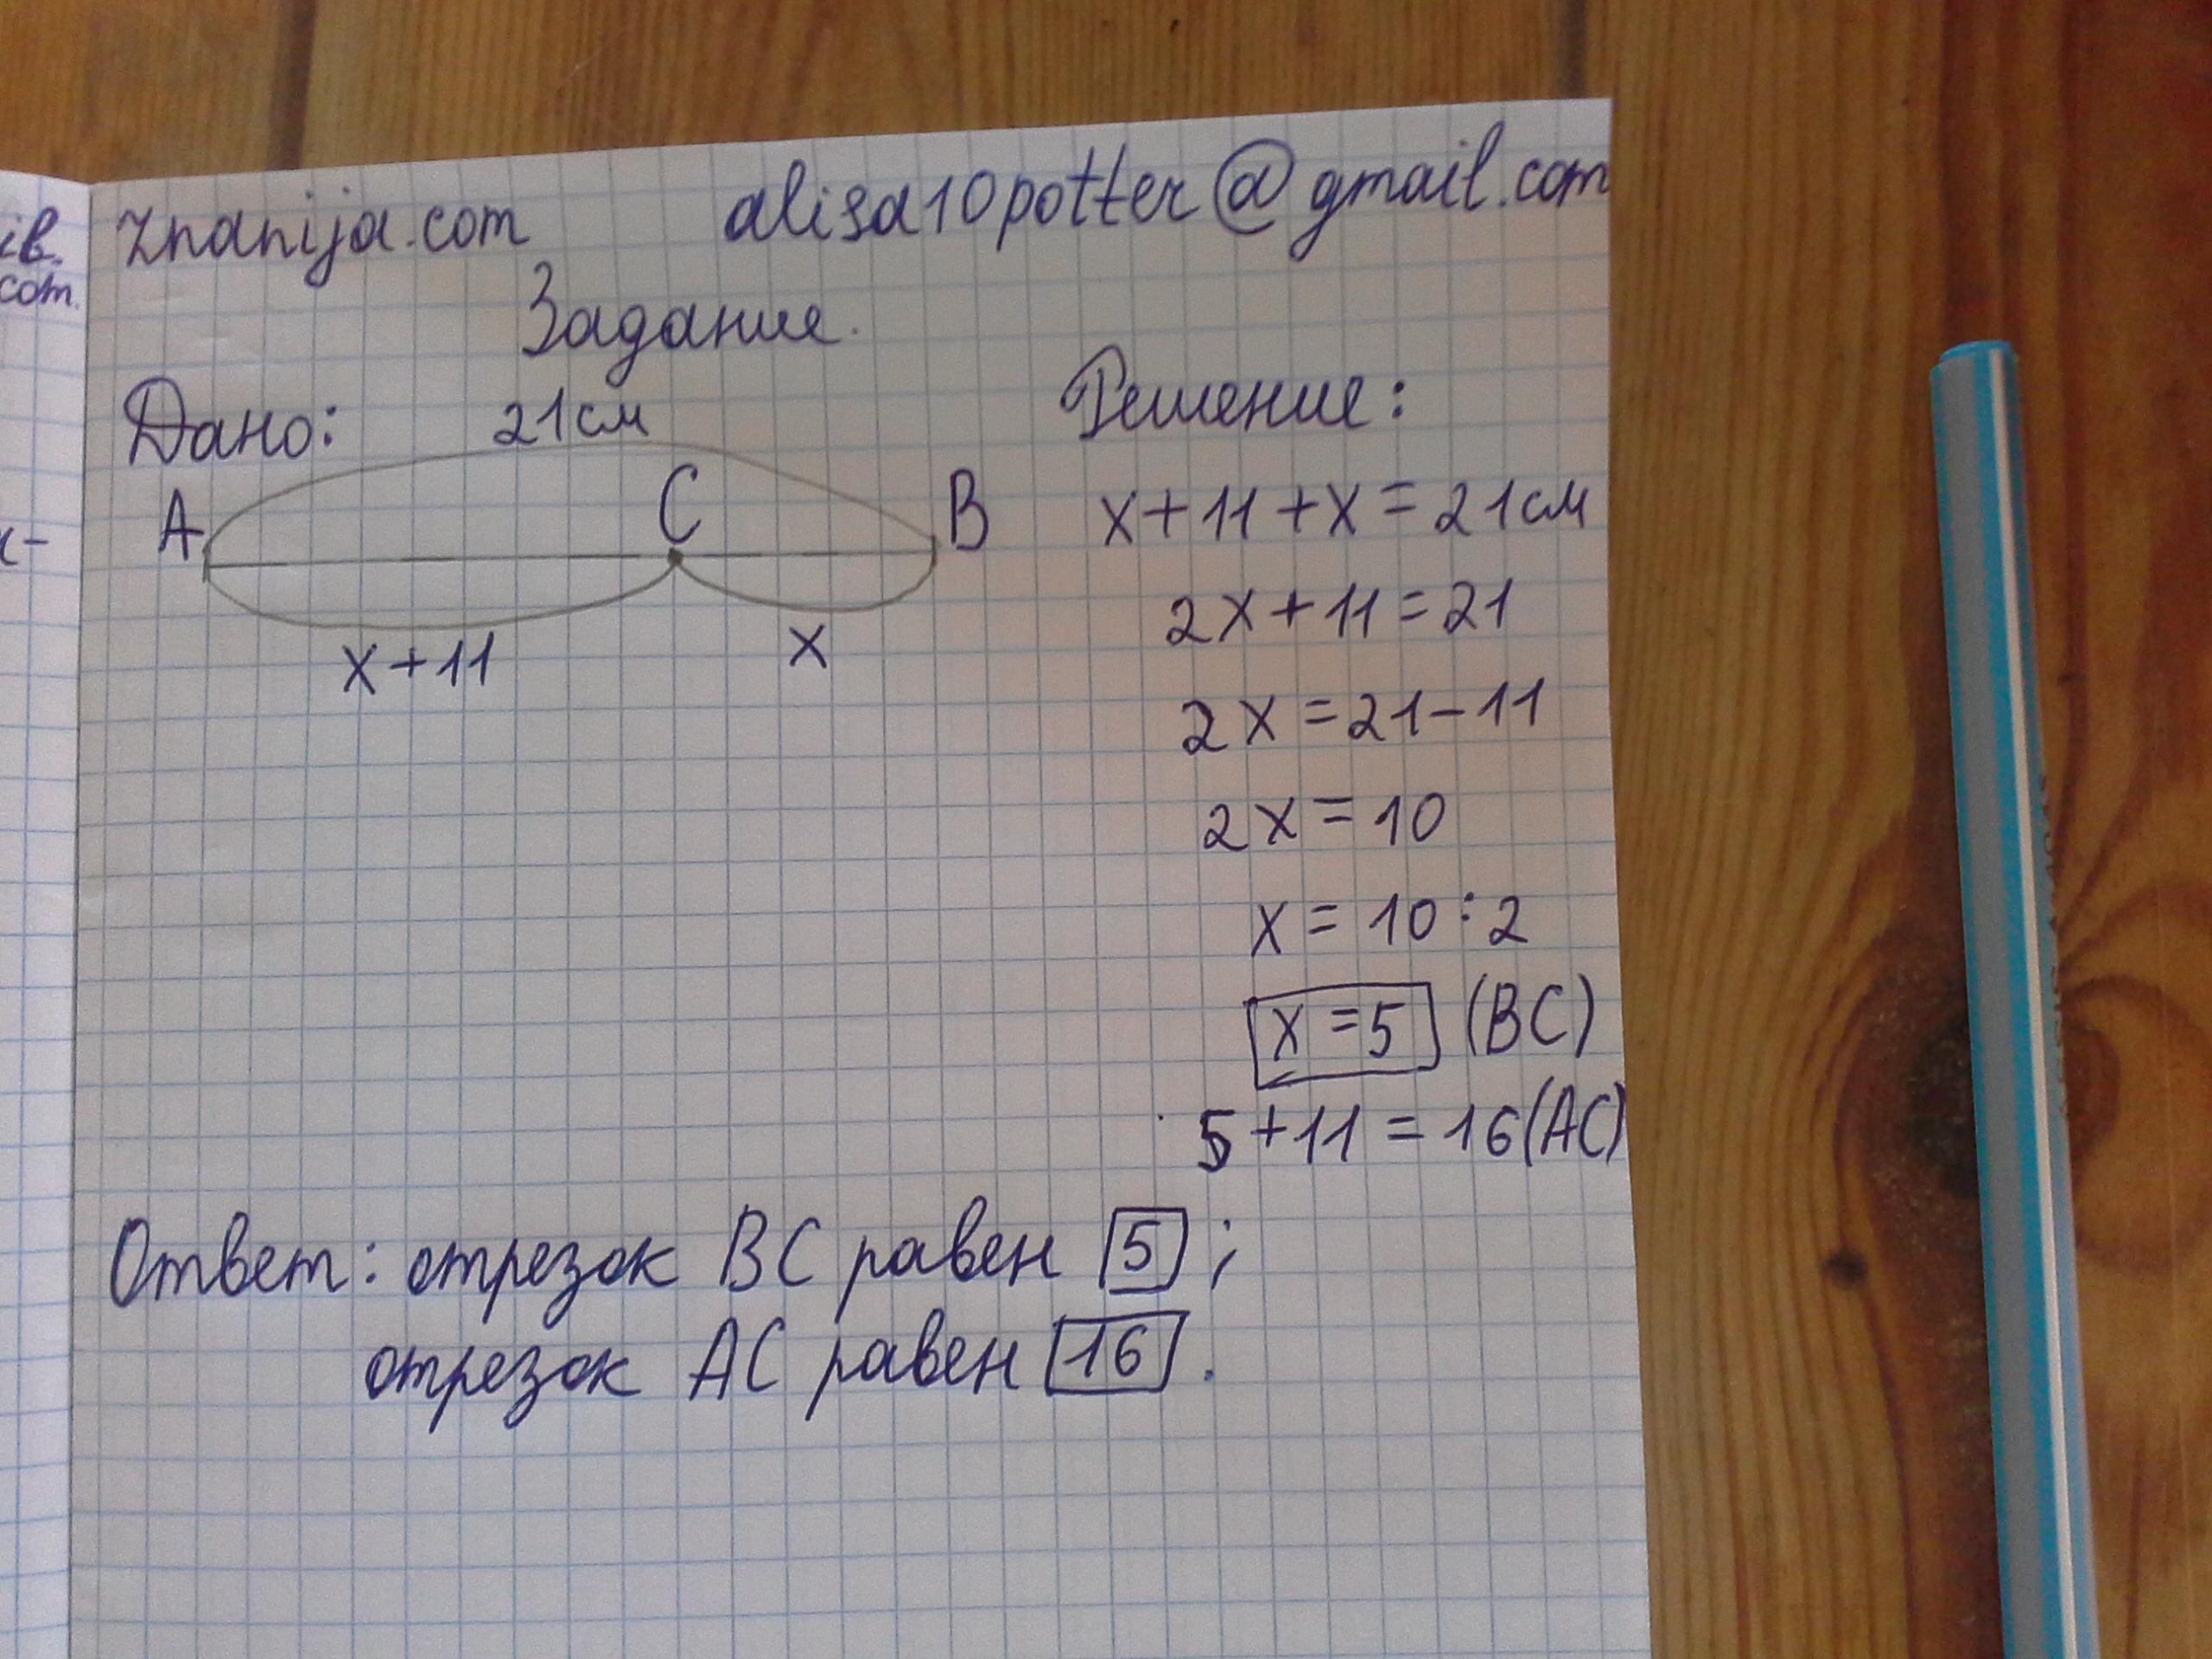 znanija.com alisa10potter@gmail.com
Задание.
Дано:
21см
A C B
x+11 x
Решение:
x+11+x=21см
2x+11=21
2x=21-11
2x=10
x=10:2
x=5 (BC)
5+11=16(AC)
Ответ: отрезок BC равен 5;
отрезок AC равен 16.
ів.
com.